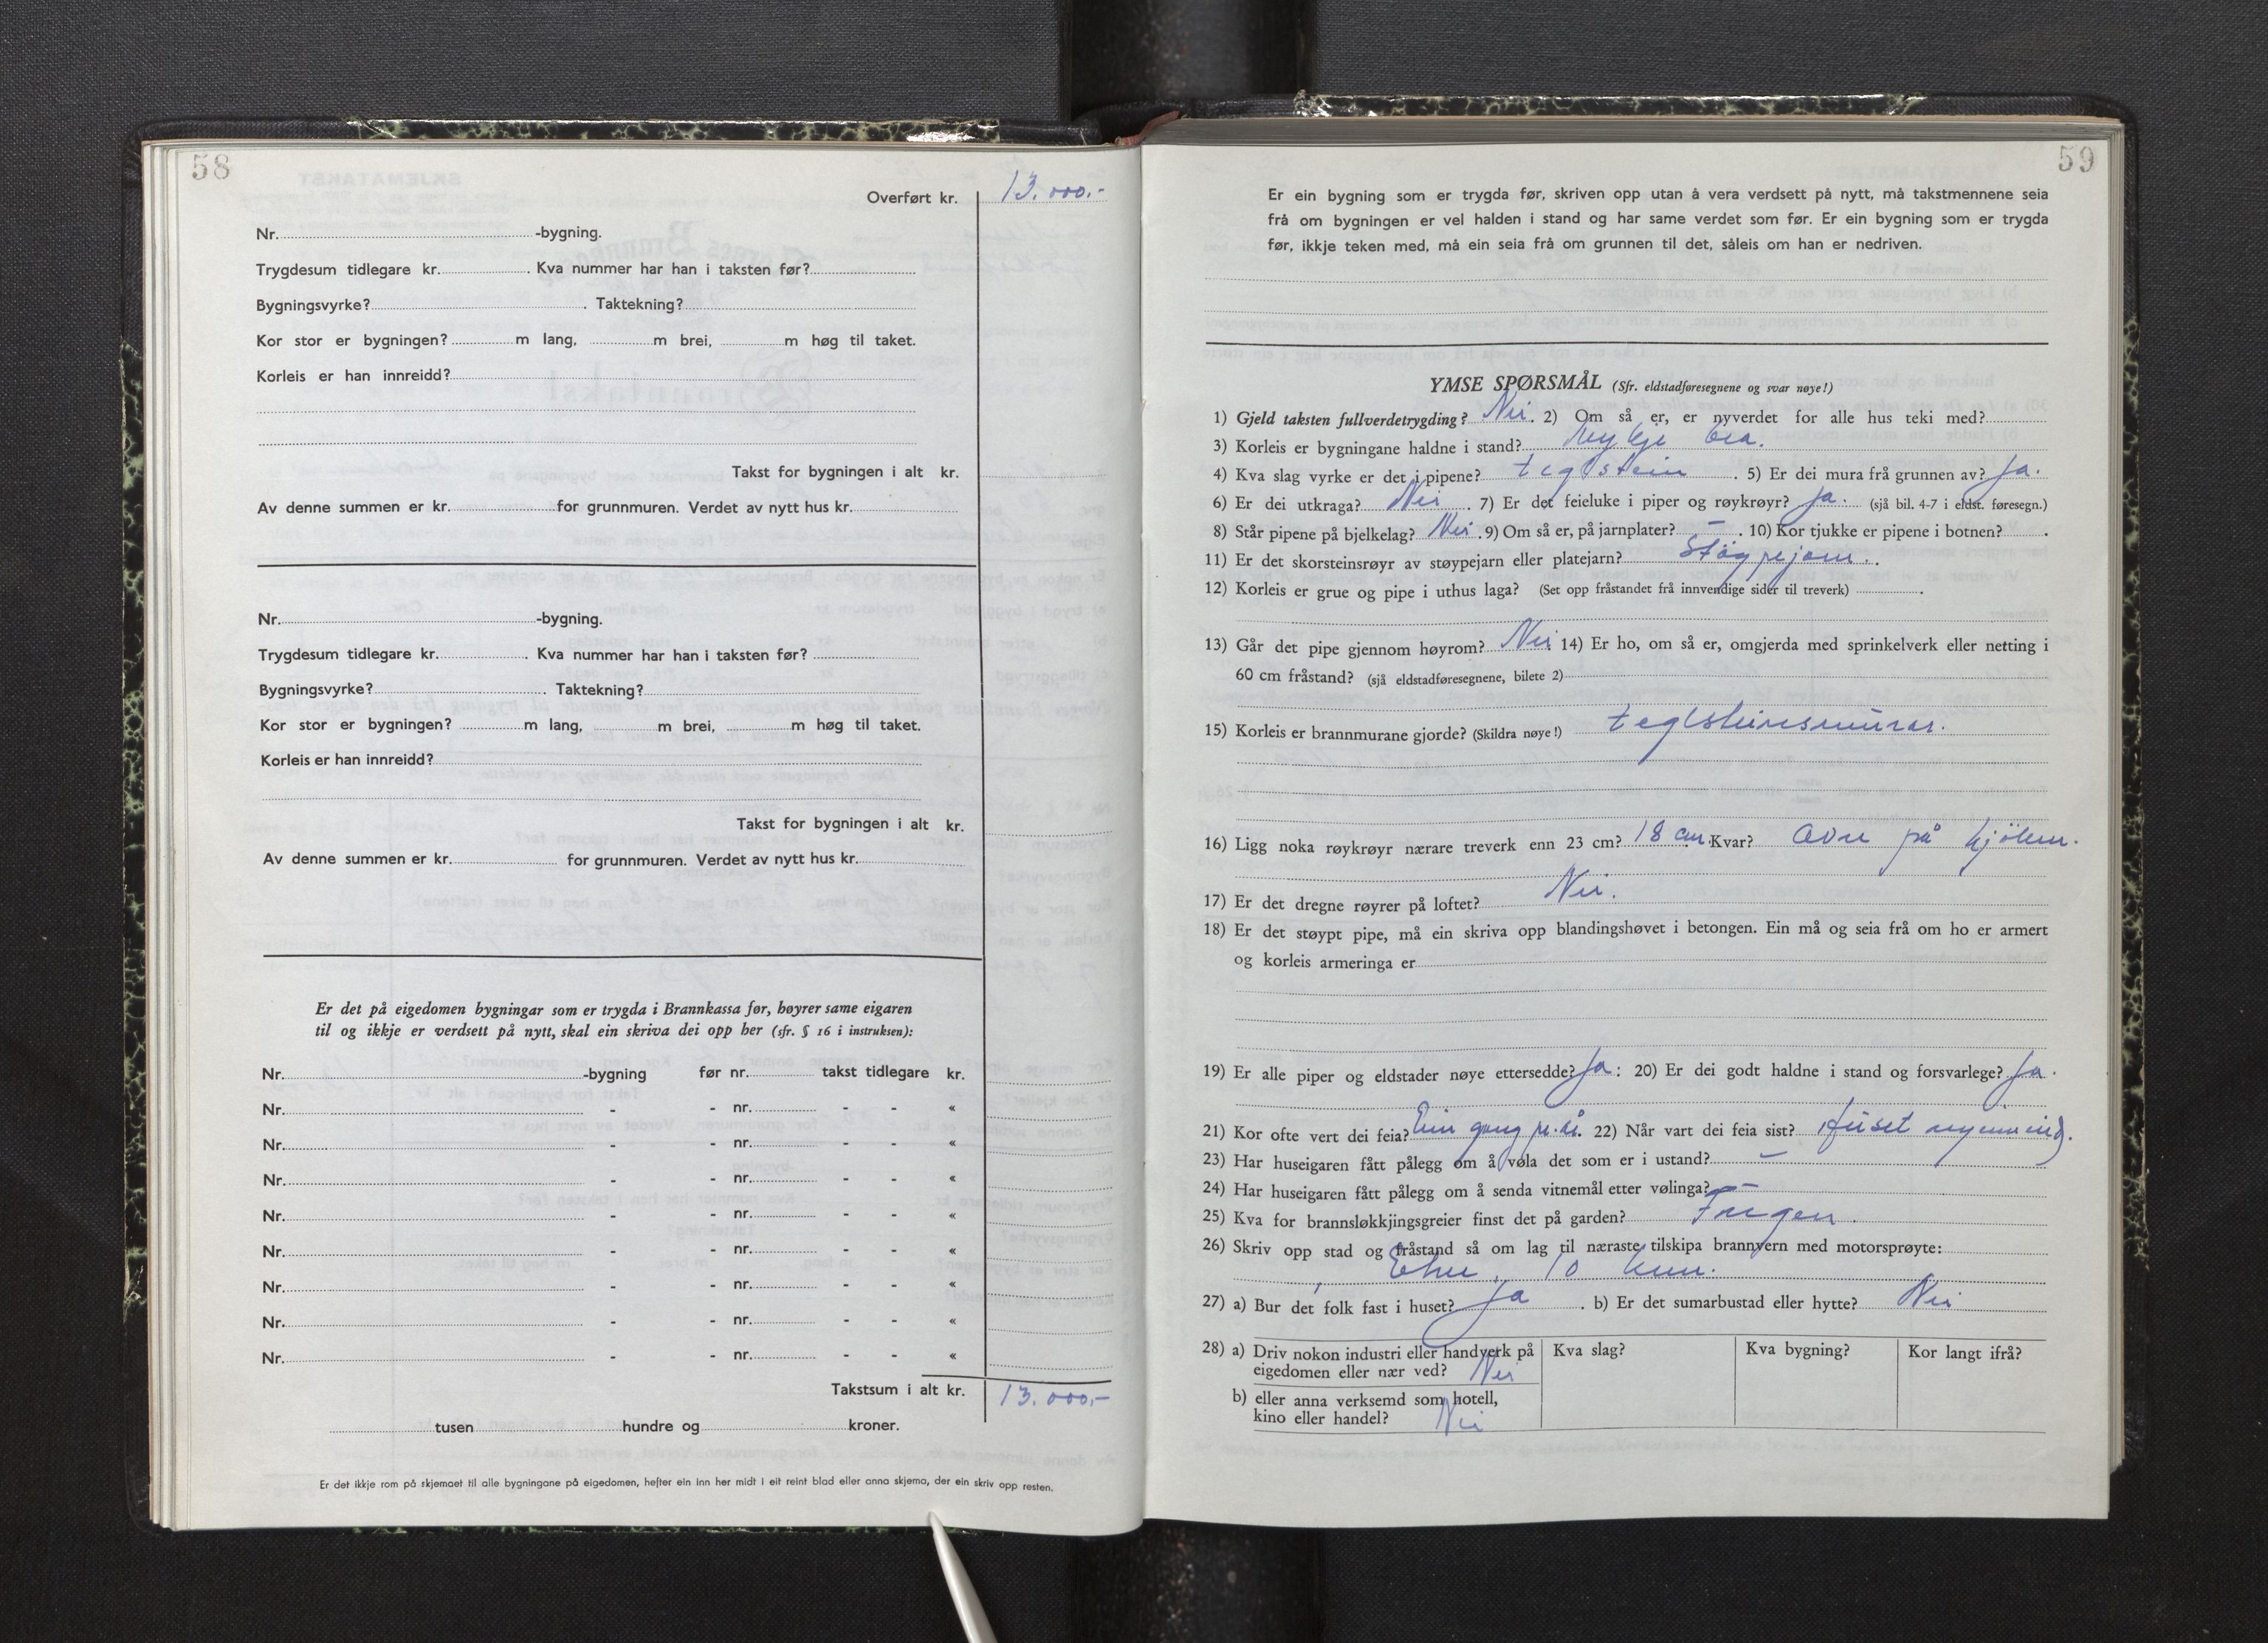 58
Overført kr. 13.000,-
Nr. -bygning.
Trygdesum tidlegare kr. . Kva nummer har han i taksten før?
Bygningsvyrke? . Taktekning?
Kor stor er bygningen? m lang, m brei, m høg til taket.
Korleis er han innreidd?
Takst for bygningen i alt kr.
Av denne summen er kr. for grunnmuren. Verdet av nytt hus kr.
Nr. -bygning.
Trygdesum tidlegare kr. . Kva nummer har han i taksten før?
Bygningsvyrke? . Taktekning?
Kor stor er bygningen? m lang, m brei, m høg til taket.
Korleis er han innreidd?
Takst for bygningen i alt kr.
Av denne summen er kr. for grunnmuren. Verdet av nytt hus kr.
Er det på eigedomen bygningar som er trygda i Brannkassa før, høyrer same eigaren
til og ikkje er verdsett på nytt, skal ein skriva dei opp her (sfr. § 16 i instruksen):
Nr. -bygning før nr. takst tidlegare kr.
Nr. - - nr. - - «
Nr. - - nr. - - «
Nr. - - nr. - - «
Nr. - - nr. - - «
Nr. - - nr. - - «
Nr. - - nr. - - «
Nr. - - nr. - - «
Nr. - - nr. - - «
Takstsum i alt kr. 13.000,-
tusen hundre og kroner.
Er det ikkje rom på skjemaet til alle bygningane på eigedomen, hefter ein inn her midt i eit reint blad eller anna skjema, der ein skriv opp resten.
59
Er ein bygning som er trygda før, skriven opp utan å vera verdsett på nytt, må takstmennene seia
frå om bygningen er vel halden i stand og har same verdet som før. Er ein bygning som er trygda
før, ikkje teken med, må ein seia frå om grunnen til det, såleis om han er nedriven.
YMSE SPØRSMÅL (Sfr. eldstadføresegnene og svar nøye!)
1) Gjeld taksten fullverdetrygding? Nei. 2) Om så er, er nyverdet for alle hus teki med?
3) Korleis er bygningane haldne i stand? Mykje bra.
4) Kva slag vyrke er det i pipene? teglstein . 5) Er dei mura frå grunnen av? Ja.
6) Er dei utkraga? Nei . 7) Er det feieluke i piper og røykrøyr? Ja. (sjå bil. 4-7 i eldst. føresegn.)
8) Står pipene på bjelkelag? Nei . 9) Om så er, på jarnplater? – . 10) Kor tjukke er pipene i botnen? .
11) Er det skorsteinsrøyr av støypejarn eller platejarn? Støypejarn.
12) Korleis er grue og pipe i uthus laga? (Set opp fråstandet frå innvendige sider til treverk) .
13) Går det pipe gjennom høyrom? Nei 14) Er ho, om så er, omgjerda med sprinkelverk eller netting i
60 cm fråstand? (sjå eldstadføresegnene, bilete 2)
15) Korleis er brannmurane gjorde? (Skildra nøye!) teglsteinsmurar.
16) Ligg noka røykrøyr nærare treverk enn 23 cm? 18 cm. Kvar? Ovn på kjöken.
17) Er det dregne røyrer på loftet? Nei.
18) Er det støypt pipe, må ein skriva opp blandingshøvet i betongen. Ein må og seia frå om ho er armert
og korleis armeringa er
19) Er alle piper og eldstader nøye ettersedde? Ja: 20) Er dei godt haldne i stand og forsvarlege? Ja.
21) Kor ofte vert dei feia? Ein gang pr. år. 22) Når vart dei feia sist? Huset nyinnreid.
23) Har huseigaren fått pålegg om å vøla det som er i ustand? –
24) Har huseigaren fått pålegg om å senda vitnemål etter vølinga? –
25) Kva for brannsløkkjingsgreier finst det på garden? Ingen.
26) Skriv opp stad og fråstand så om lag til næraste tilskipa brannvern med motorsprøyte:
Etne, 10 km.
27) a) Bur det folk fast i huset? Ja . b) Er det sumarbustad eller hytte? Nei
28) a) Driv nokon industri eller handverk på
eigedomen eller nær ved? Nei
Kva slag? Kva bygning? Kor langt ifrå?
b) eller anna verksemd som hotell,
kino eller handel? Nei